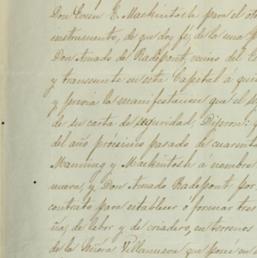 Don Ewen C. Mackintosh para el oto
instrumento, de que doy fé, de la una p
Don Amado de Radepont, vecino del
y transeunte en esta Capital á qui
y previa la manifestacion que él
de su carta de seguridad, Dijeron:
del año próximo pasado de cuarenta
Manning y Mackintosh á nombre
nueva, y Don Amado Radepont, por
contrato para establecer ó formar tres
ñas, de labor y de criadero, en terrenos
de la Señora Villanueva que posee en